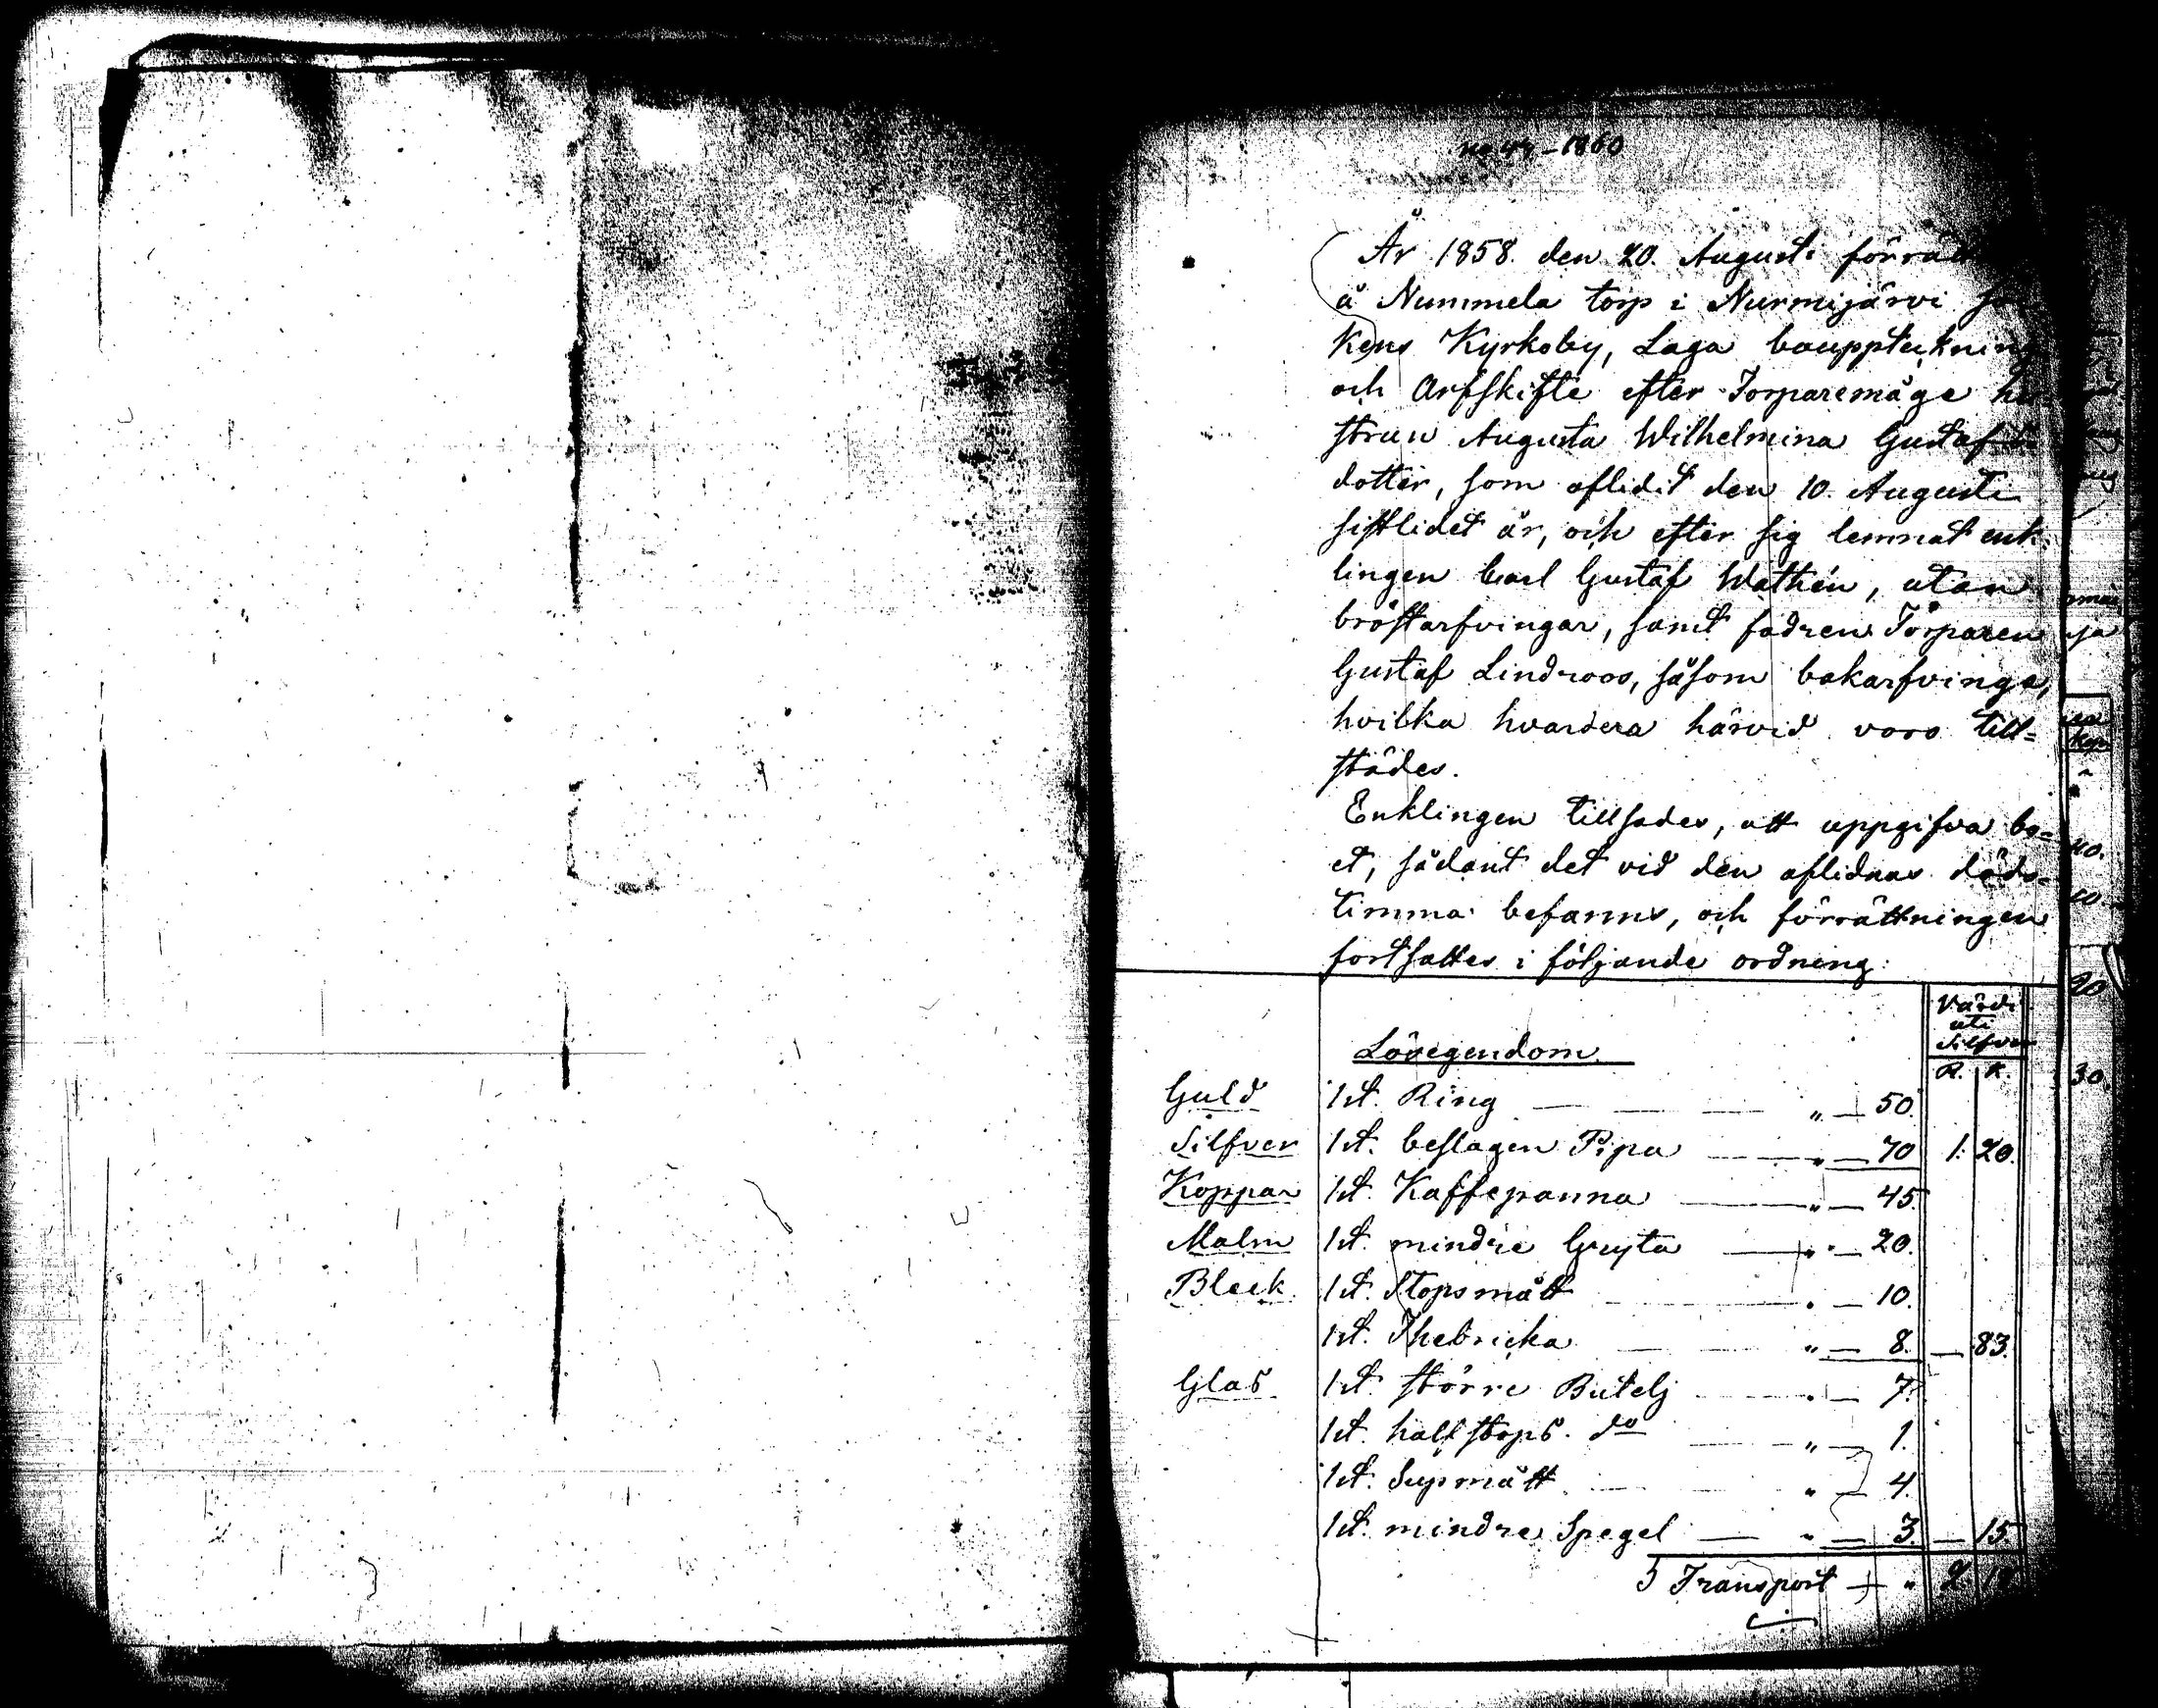 1860
År 1858. den 20. Augusti
å Nummela torp i Nurmijärvi
kens Kyrkoby, Laga bouppteckning
och Arfskifte efter Torparemåge hu-
strun Augusta Wilhelmina Gustafs-
dotter, som aflidit den 10. Augusti
sistlidet år, och efter sig lemnat enk-
lingen Carl Gustaf Wathén, utan
bröstarfvingar, samt fadren Torparen
Gustaf Lindroos, såsom bakarfvinge,
hvilka hvardera härvid voro till-
städes.
Enklingen tillsades, att uppgifva bo-
et, sådant det vid den aflidnas döds-
timma befanns, och förrättningen
fortsattes i följande ordning:
Värde
uti
Silfver
R. K.
Lösegendom
Guld 1st. Ring — — — " — 50.
Silfver 1st. beslagen Pipa — — " — 70 1. 20.
Koppar 1st. Kaffepanna — " — 45.
Malm 1st. mindre Gryta — " — 20.
Bleck 1st. Stopsmått — " — 10.
1st. Thebricka — " — 8. — 83.
Glas 1st. större Butelj — " — 7.
1st. half stops do — " — 1.
1st. Supmått — " — 4.
1st. mindre Spegel — " — 3. — 15.
Transport — " 2